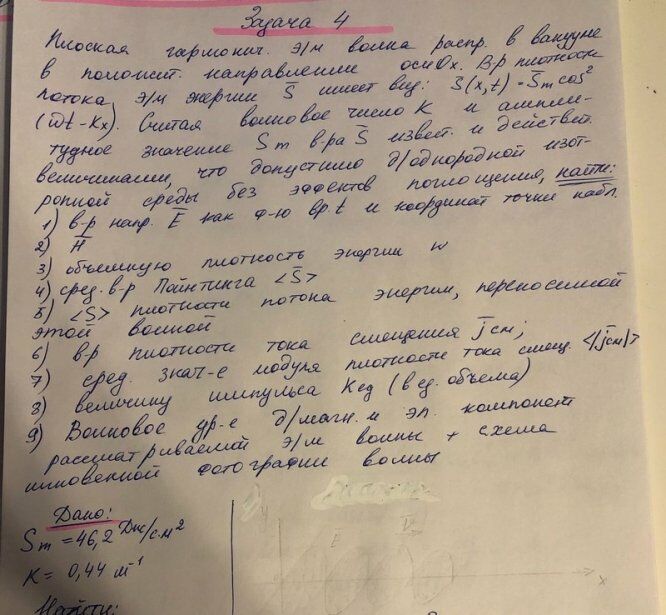 Задача 4
Плоская гармонич. э/м волна распр. в вакууме
в положит. направлении оси Ox. В-р плотности
потока э/м энергии S̄ имеет вид: S̄(x,t) = S̄m cos²
(ωt - Kx). Считая волновое число K и ампли-
тудное значение Sm в-ра S̄ извест. и действит.
величинами, что допустимо д/однородной изот-
ропной среды без эффектов поглощения, найти:
1) в-р напр. Ē как ф-ю вр. t и координат точки набл.
2) H̄
3) объемную плотность энергии w
4) сред. в-р Пойнтинга <S̄>
5) <S> плотности потока энергии, переносимой
этой волной
6) в-р плотности тока смещения j̄см;
7) сред. знач-е модуля плотности тока смещ. <|j̄см|>
8) величину импульса Kед (в ед. объема)
9) Волновое ур-е д/магн. и эл. компонент
рассматриваемой э/м волны + схема
мгновенной фотографии волны
Дано:
Sm = 46,2 Дж/с·м²
K = 0,44 м⁻¹
Найти:
y
E
x